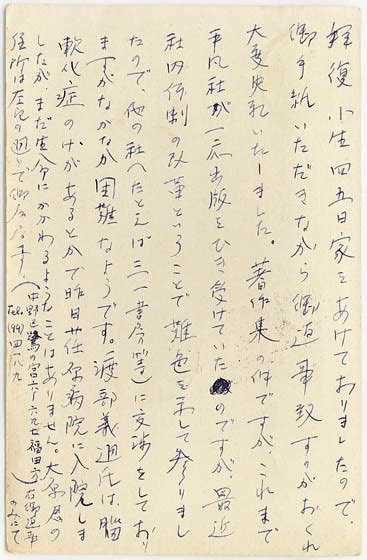 拝復 小生四五日家をあけておりましたので、
御手紙いただきながら御返事致すのがおくれ
大変失礼いたしました。著作集の件ですが、これまで
平凡社が一応出版をひき受けていたのですが、最近
社内体制の改革ということで難色を示して参りまし
たので、他の社へたとえば三一書房等に交渉をしており
ますがなかなか困難なようです。渡部義通氏は、脳
軟化症のけがあるとかで昨日荏原病院に入院しま
したが、まだ生命にかかわるようなことはありません。大原君の
住所は左記の通りで御座居ます
(中野区鷺の宮六ノ六九七 福田方)
右御返事
のみにて